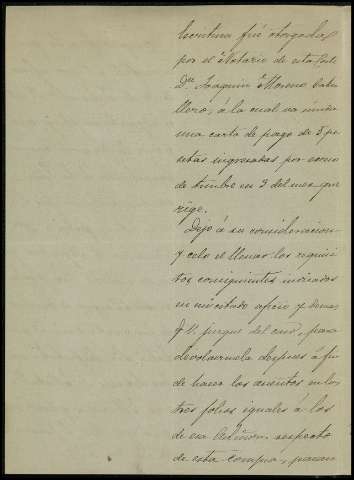 Escritura fué otorgada
por el Notario de esta Corte
Dn. Joaquin Moreno Caba-
llero, á la cual va unida
una carta de pago de 5 pe
setas ingresadas por
de timbre en 3 del mes que
rige.
Dejo á su consideracion
y celo el llenar los requisi
tos consiguientes indicados
en mi citado oficio y demas
q. V. juzgue del caso, para
devolvermela despues á fin
de hacer los asientos en los
tres folios iguales á los
de ese respecto
de esta compra, para